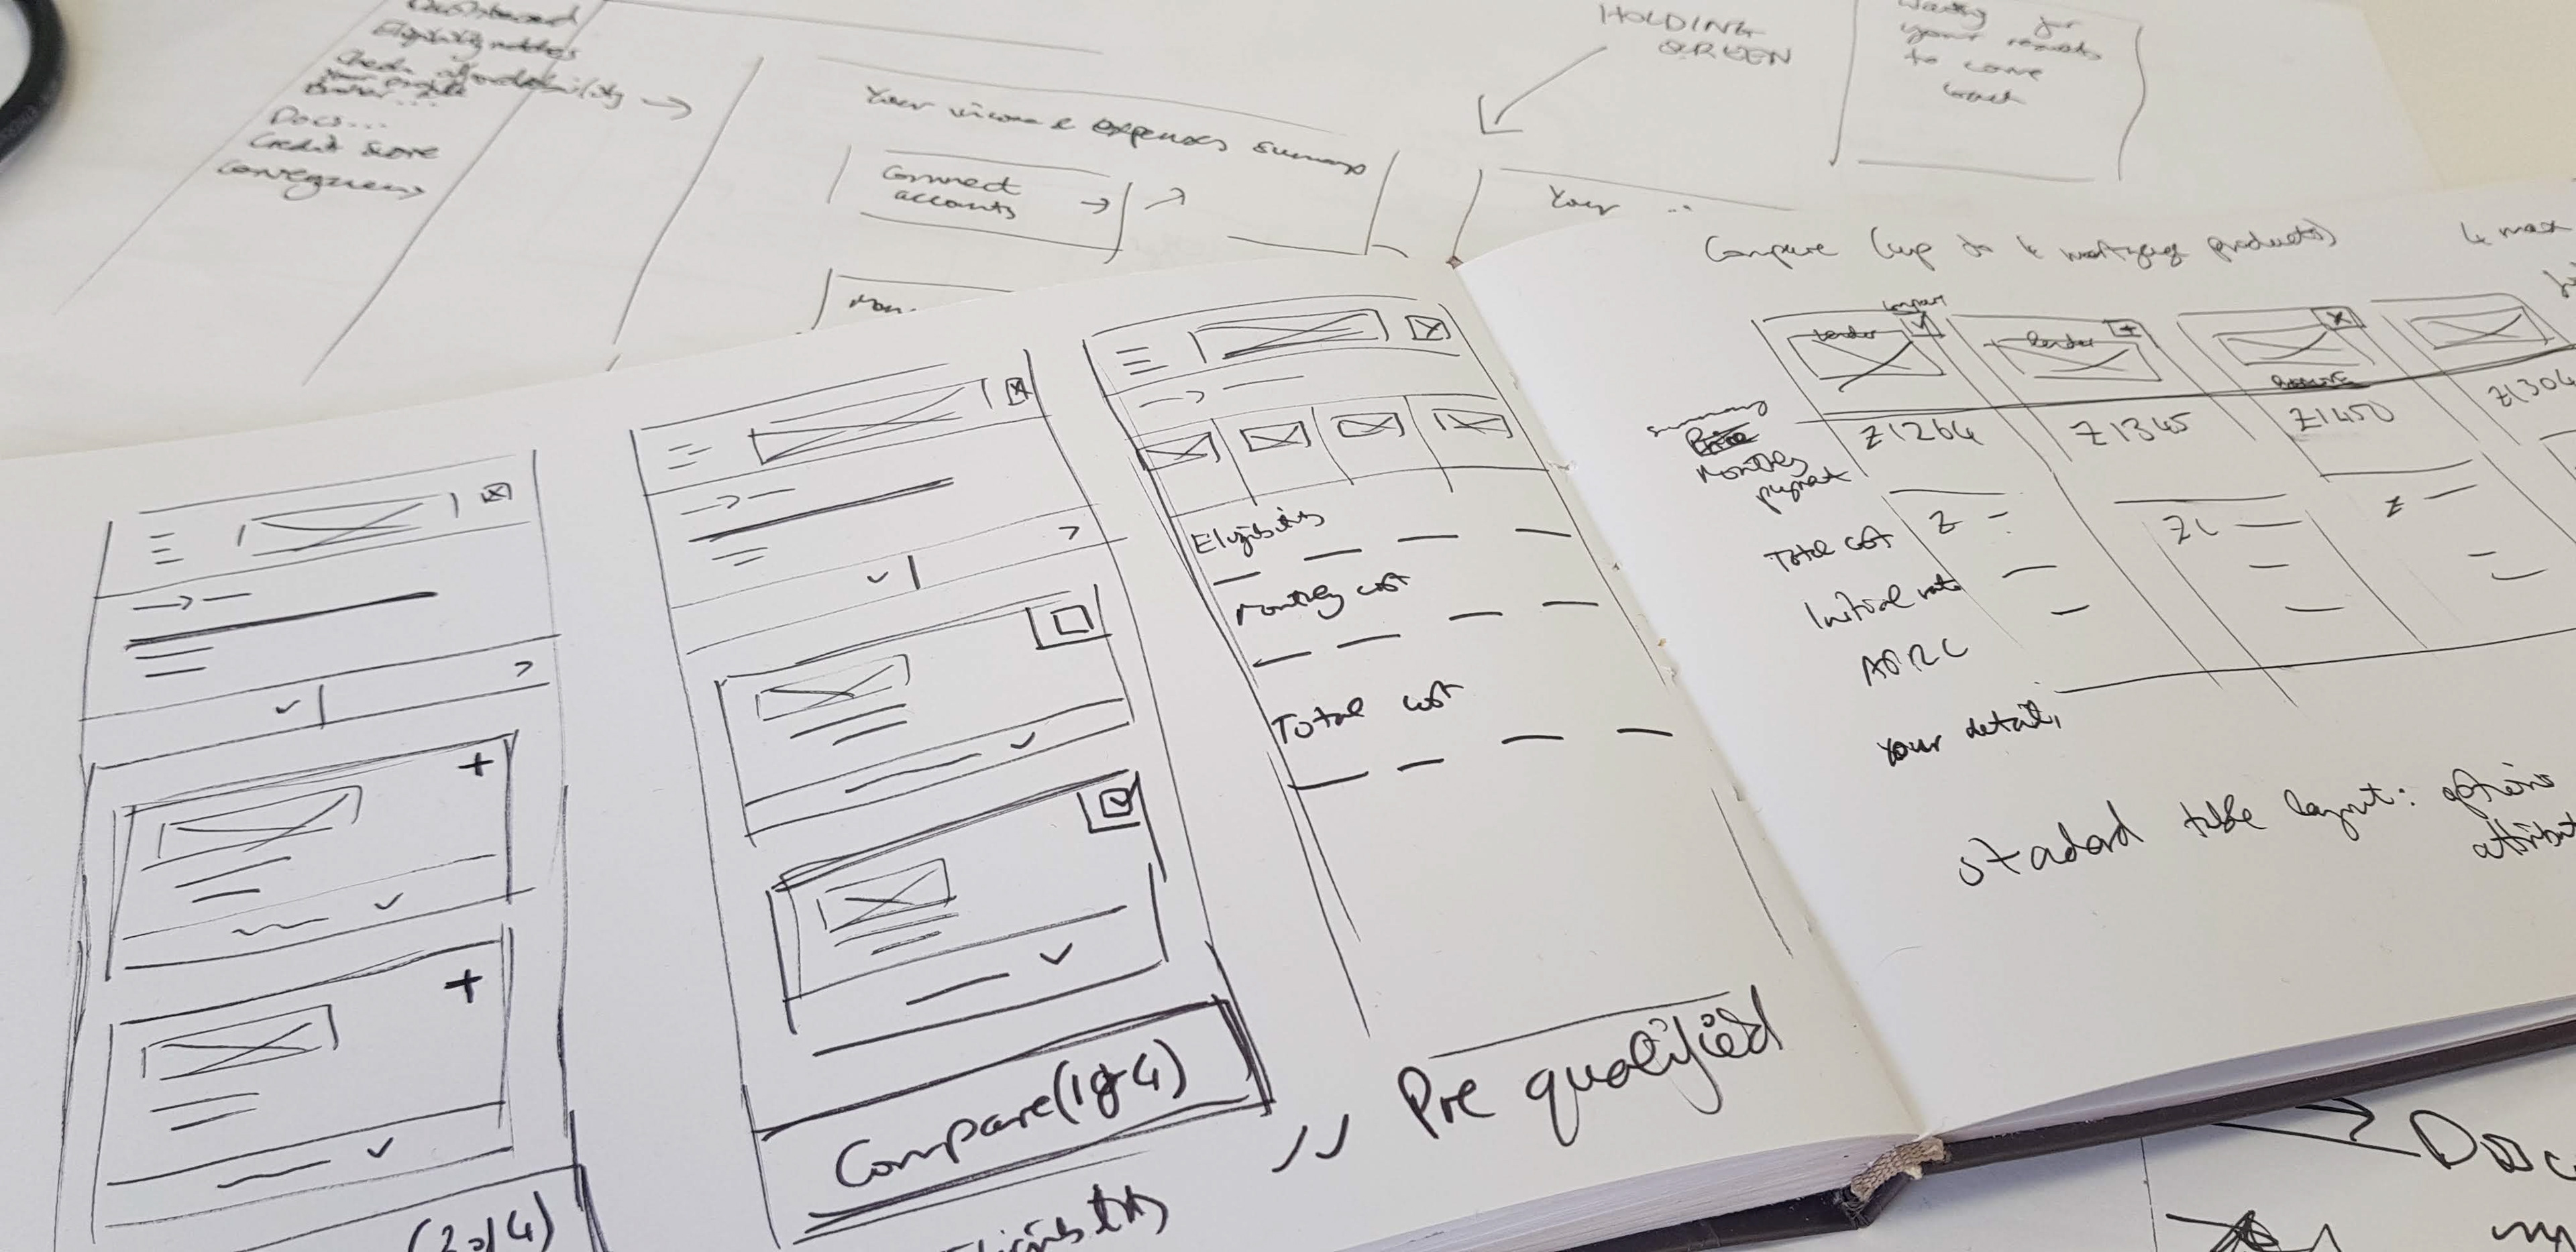 Dashboard
Eligibility
Check affordability →
Docs...
Credit score
Your income & expenses summary
Connect
accounts
HOLDING
SCREEN
Waiting for
your results
to come
back
Your ..
Compare (up to 4 mortgage products)
4 max
compart
lender
lender
summary
Monthly
payment
£1264
£1345
£1450
£1304
Total cost
£
£1
£
Initial rate
APRC
Your details
standard table layout: options
Eligibility
Monthly cost
Total cost
Compare (1 of 4)
(2 of 4)
Eligibility
,, Pre qualified